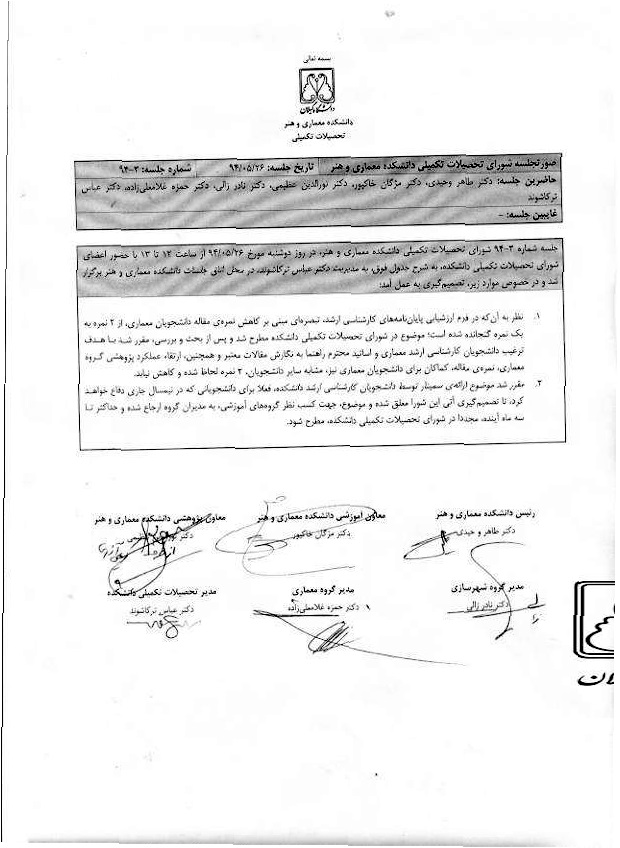 بسمه تعالی
دانشگاه گیلان
دانشکده معماری و هنر
تحصیلات تکمیلی
صورتجلسه شورای تحصیلات تکمیلی دانشکده معماری و هنر تاریخ جلسه: ۹۴/۰۵/۲۶ شماره جلسه: ۳-۹۴
حاضرین جلسه: دکتر طاهر وحیدی، دکتر مژگان خاکپور، دکتر نورالدین عظیمی، دکتر نادر زالی، دکتر حمزه غلامعلی‌زاده، دکتر عباس
ترکاشوند
غایبین جلسه: -
جلسه شماره ۳-۹۴ شورای تحصیلات تکمیلی دانشکده معماری و هنر، در روز دوشنبه مورخ ۹۴/۰۵/۲۶ از ساعت ۱۲ تا ۱۳ با حضور اعضای
شورای تحصیلات تکمیلی دانشکده، به شرح جدول فوق، به مدیریت دکتر عباس ترکاشوند، در محل اتاق جلسات دانشکده معماری و هنر برگزار
شد و در خصوص موارد زیر، تصمیم‌گیری به عمل آمد:
۱. نظر به آن‌که در فرم ارزشیابی پایان‌نامه‌های کارشناسی ارشد، تبصره‌ای مبنی بر کاهش نمره‌ی مقاله دانشجویان معماری، از ۲ نمره به
یک نمره گنجانده شده است؛ موضوع در شورای تحصیلات تکمیلی دانشکده مطرح شد و پس از بحث و بررسی، مقرر شد با هدف
ترغیب دانشجویان کارشناسی ارشد معماری و اساتید محترم راهنما به نگارش مقالات معتبر و همچنین، ارتقاء عملکرد پژوهشی گروه
معماری، نمره‌ی مقاله، کماکان برای دانشجویان معماری نیز، مشابه سایر دانشجویان، ۲ نمره لحاظ شده و کاهش نیابد.
۲. مقرر شد موضوع ارائه‌ی سمینار توسط دانشجویان کارشناسی ارشد دانشکده، فعلا برای دانشجویانی که در نیمسال جاری دفاع خواهند
کرد، تا تصمیم‌گیری آتی این شورا معلق شده و موضوع، جهت کسب نظر گروه‌های آموزشی، به مدیران گروه ارجاع شده و حداکثر تا
سه ماه آینده، مجددا در شورای تحصیلات تکمیلی دانشکده، مطرح شود.
رئیس دانشکده معماری و هنر معاون آموزشی دانشکده معماری و هنر معاون پژوهشی دانشکده معماری و هنر
دکتر طاهر وحیدی دکتر مژگان خاکپور دکتر
مدیر گروه شهرسازی مدیر گروه معماری مدیر تحصیلات تکمیلی دانشکده
دکتر نادر زالی دکتر حمزه غلامعلی‌زاده دکتر عباس ترکاشوند